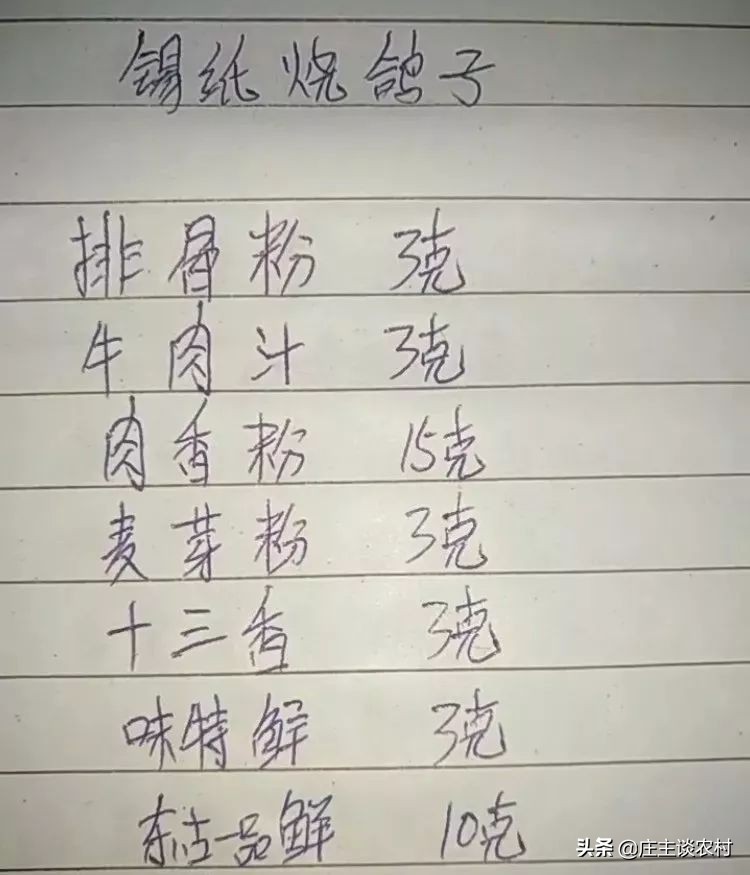 锡纸烧鸽子
排骨粉 3克
牛肉汁 3克
肉香粉 15克
麦芽粉 3克
十三香 3克
味特鲜 3克
东古一品鲜 10克
头条 @庄主谈农村